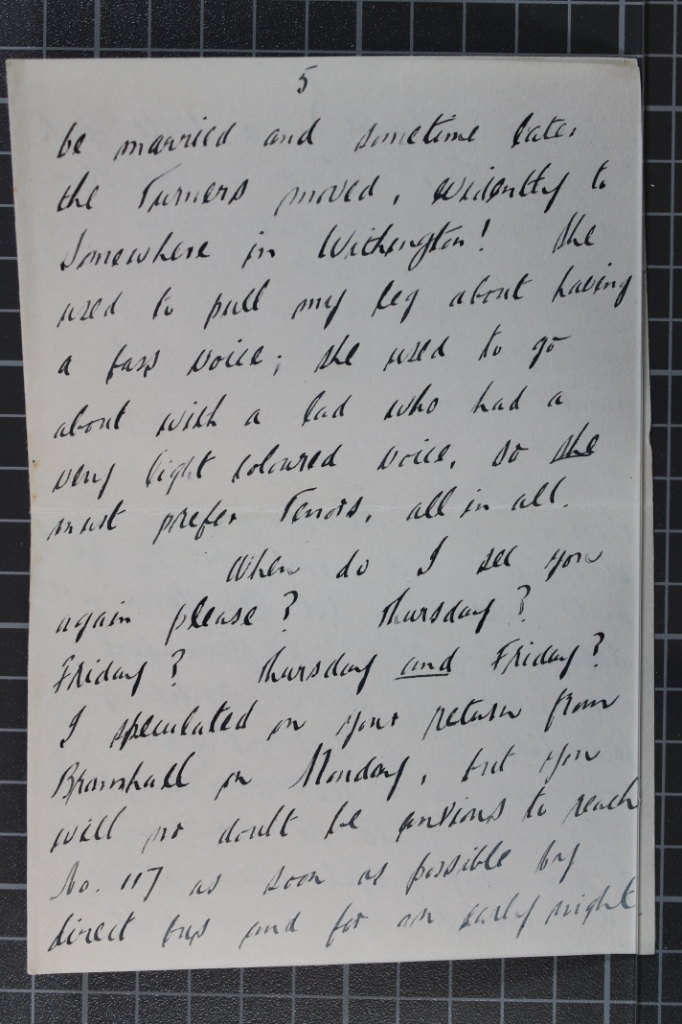 5
be married and sometime later
the Turners moved, evidently to
Somewhere in Withington! She
used to pull my leg about having
a bass voice; she used to go
about with a lad who had a
very light coloured voice, so she
must prefer Tenors, all in all.
When do I see you
again please? Thursday?
Friday? Thursday and Friday?
I speculated on your return from
Bramhall on Monday, but you
will no doubt be anxious to reach
No. 117 as soon as possible by
direct bus and for an early night.